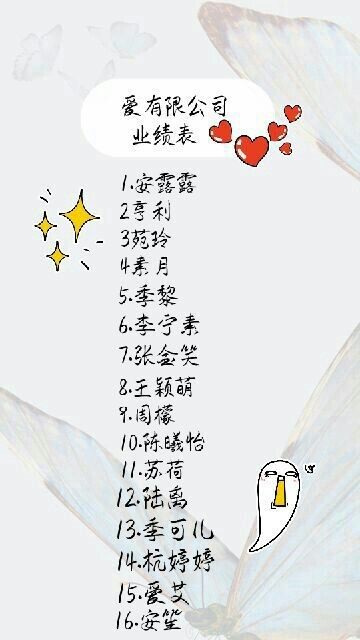 爱有限公司
业绩表
1.安露露
2亨利
3苑玲
4素月
5.季黎
6.李宁素
7.张念笑
8.王颖萌
9.周檬
10.陈曦怡
11.苏荷
12.陆离
13.季可儿
14.杭婷婷
15.爱艾
16.安笙